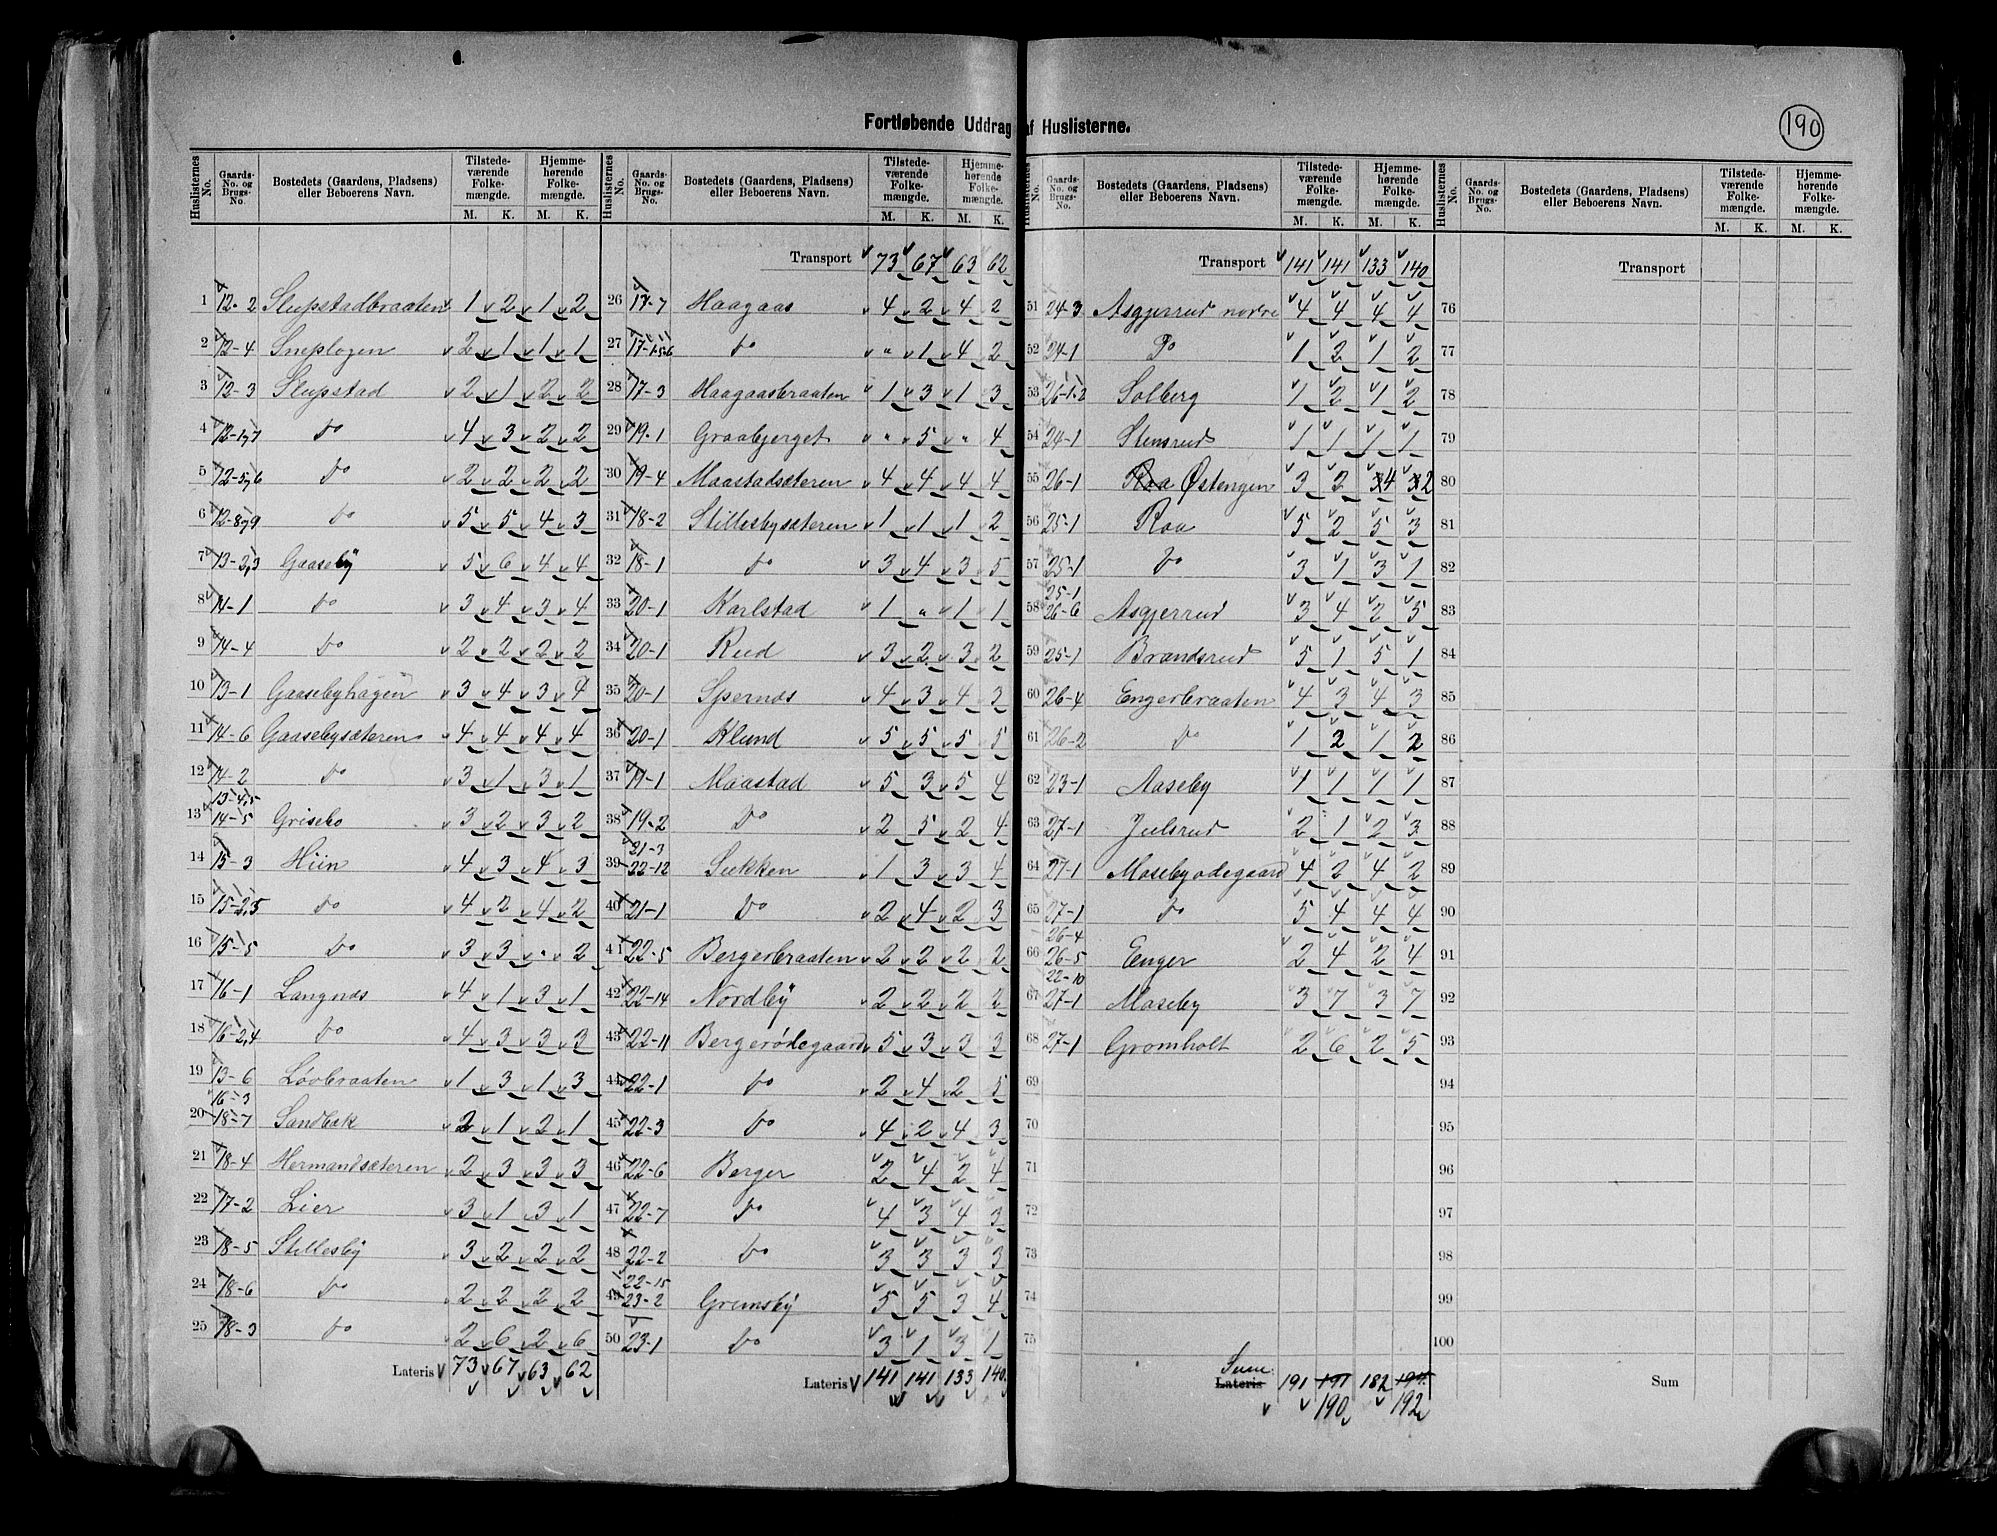 190
Fortløbende Uddrag af Huslisterne.
Huslisternes No. | Gaards-No. og Brugs-No. | Bostedets (Gaardens, Pladsens) eller Beboerens Navn. | Tilstedeværende Folkemængde. M. K. | Hjemmehørende Folkemængde. M. K.
1 12-2 Slupstadbraaten 1 2 1 2
2 12-4 Sneplogen 2 1 1 1
3 12-3 Slupstad 2 1 2 2
4 12-1,7 Do 4 3 2 2
5 12-5,6 Do 2 2 2 2
6 12-8,9 Do 5 5 4 3
7 13-2,3 Gaaseby 5 6 4 4
8 14-1 Do 3 4 3 4
9 14-4 Do 2 2 2 2
10 13-1 Gaasebyhagen 3 4 3 4
11 14-6 Gaasebysæteren 4 4 4 4
12 14-2 Do 3 1 3 1
13 13-4,5 14-5 Grisebo 3 2 3 2
14 15-3 Hiin 4 3 4 3
15 15-2,5 Do 4 2 4 2
16 15-5 Do 3 3 " 2
17 16-1 Langnæs 4 1 3 1
18 16-2,4 Do 4 3 3 3
19 13-6 Løvbraaten 1 3 1 3
20 16-3 18-7 Sandbæk 2 1 2 1
21 18-4 Hermandsæteren 2 3 3 3
22 17-2 Lier 3 1 3 1
23 18-5 Stillesby 3 2 2 2
24 18-6 Do 2 2 2 2
25 18-3 Do 2 6 2 6
Lateris 73 67 63 62
Transport 73 67 63 62
26 17-7 Haagaas 4 2 4 2
27 17-1,5,6 Do " 1 4 2
28 17-3 Haagaasbraaten 1 3 1 3
29 19-1 Graabjerget " 5 " 4
30 19-4 Maastadsæteren 4 4 4 4
31 18-2 Stillesbysæteren 1 1 1 2
32 18-1 Do 3 4 3 5
33 20-1 Karlstad 1 " 1 1
34 20-1 Rud 3 2 3 2
35 20-1 Spernæs 4 3 4 3
36 20-1 Klund 5 5 5 5
37 19-1 Maastad 5 3 5 4
38 19-2 Do 2 5 2 4
39 21-3 22-12 Sækken 1 3 3 4
40 21-1 Do 2 4 2 3
41 22-5 Bergerbraaten 2 2 2 2
42 22-14 Nordby 2 2 2 2
43 22-11 Bergerødegaard 5 3 3 3
44 22-1 Do 2 4 2 5
45 22-3 Do 4 2 4 3
46 22-6 Berger 2 4 2 4
47 22-7 Do 4 3 4 3
48 22-2 Do 3 3 3 3
49 22-15 23-2 Gremsby 5 5 3 4
50 23-1 Do 3 1 3 1
Lateris 141 141 133 140
Transport 141 141 133 140
51 24-3 Asgjerrud nordre 4 4 4 4
52 24-1 Do 1 2 1 2
53 26-1,2 Solberg 1 2 1 2
54 24-1 Stensrud 1 1 1 1
55 26-1 Roa Østengen 3 2 34 32
56 25-1 Roa 5 2 5 3
57 25-1 Do 3 1 3 1
58 25-1 26-6 Asgjerrud 3 4 2 5
59 25-1 Brandsrud 5 1 5 1
60 26-4 Engerbraaten 4 3 4 3
61 26-2 Do 1 2 1 2
62 23-1 Aaseby 1 1 1 1
63 27-1 Julsrud 2 1 2 3
64 27-1 Mosebyødegaard 4 2 4 2
65 27-1 Do 5 4 4 4
66 26-4 26-5 22-10 Enger 2 4 2 4
67 27-1 Moseby 3 7 3 7
68 27-1 Gromholt 2 6 2 5
69
70
71
72
73
74
75
Sum
Lateris 191 191 182 194
190 192
Transport
76
77
78
79
80
81
82
83
84
85
86
87
88
89
90
91
92
93
94
95
96
97
98
99
100
Sum